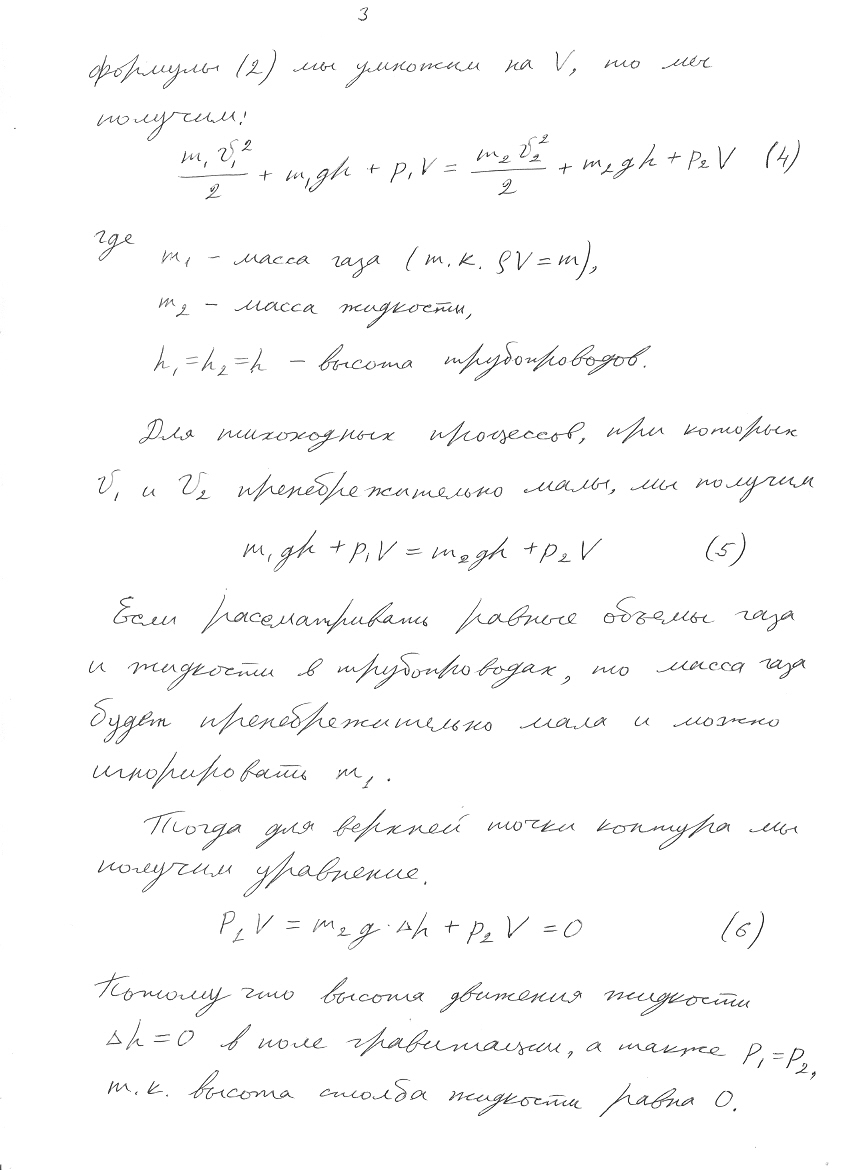 3
формулы (2) мы умножим на V, то мы
получим:
m₁v₁²/2 + m₁gh + p₁V = m₂v₂²/2 + m₂gh + p₂V (4)
где
m₁ – масса газа (т.к. ρV = m),
m₂ – масса жидкости,
h₁=h₂=h – высота трубопроводов.
Для тихоходных процессов, при которых
v₁ и v₂ пренебрежительно малы, мы получим
m₁gh + p₁V = m₂gh + p₂V (5)
Если рассматривать равные объемы газа
и жидкости в трубопроводах, то масса газа
будет пренебрежительно мала и можно
игнорировать m₁.
Тогда для верхней точки контура мы
получим уравнение.
P₁V = m₂g·Δh + p₂V = 0 (6)
Потому что высота движения жидкости
Δh = 0 в поле гравитации, а также P₁=P₂,
т.к. высота столба жидкости равна 0.